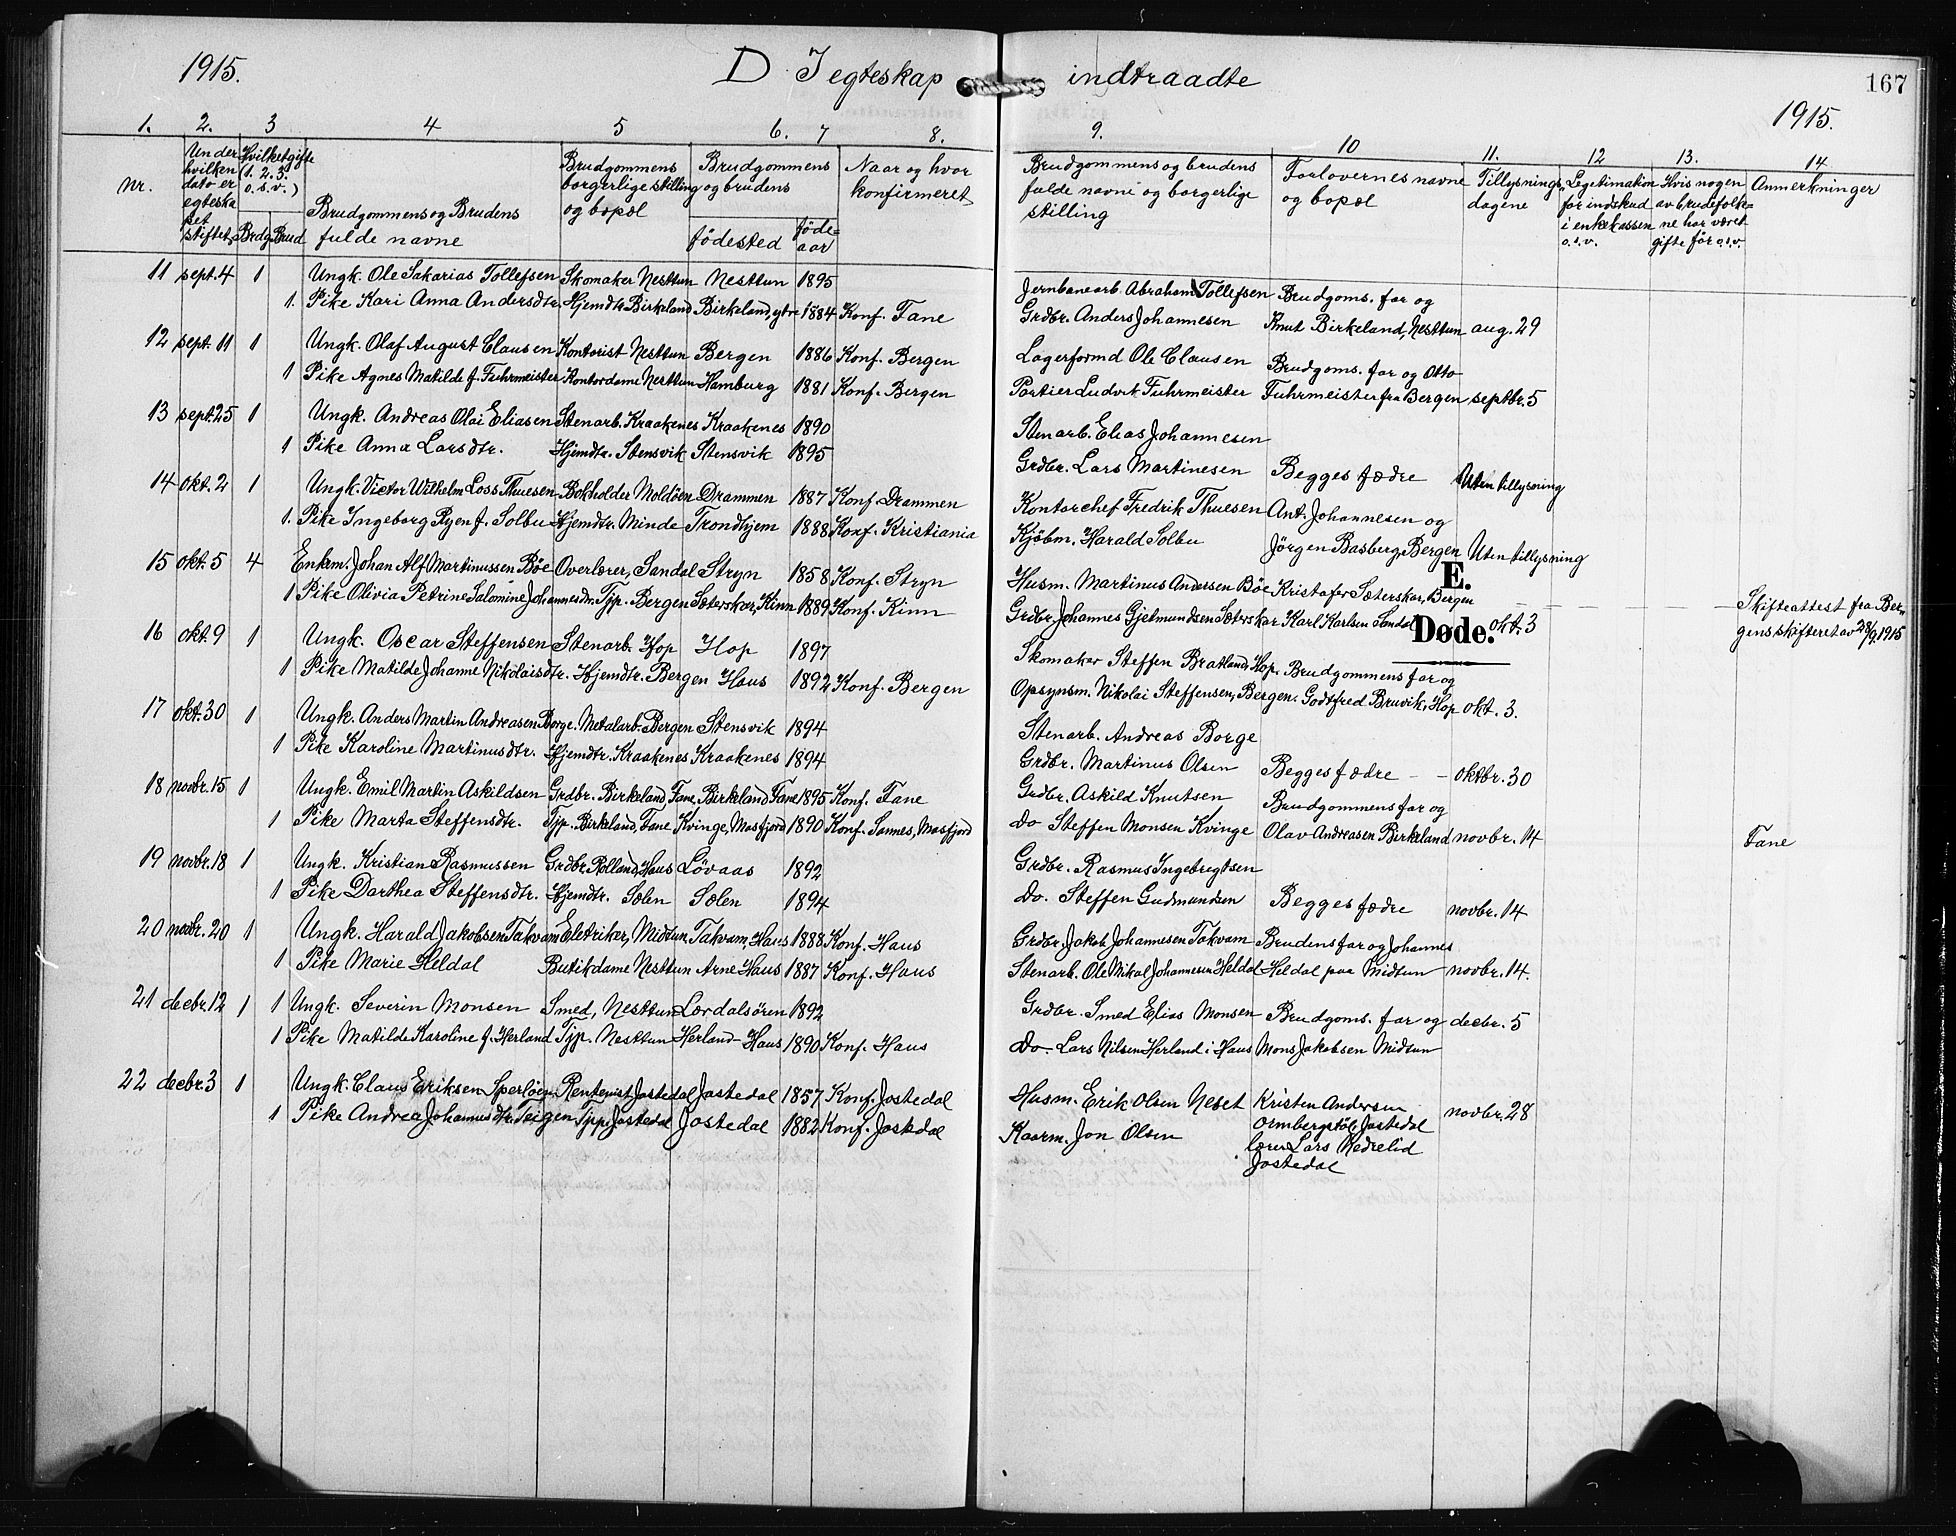 1915.
D. I egteskap indtraadte
167
1915.
1. 2. 3 4 5 6. 7 8.
9. 10 11. 12 13. 14
nr.
Under hvilken dato er egteskapet stiftet
Hvilket gifte (1. 2. 3. o.s.v.)
Brdg. Brud
Brudgommens og Brudens fulde navne
Brudgommens borgerlige stilling og bopæl
Brudgommens og brudens
födested
föde=aar
Naar og hvor konfirmeret
Brudgommens og brudens fædres fulde navne og borgerlige stilling
Forlovernes navne og bopæl
Tillysnings dagene
Legitimation for indskud i enkekassen o.s.v.
Hvis nogen av brudefolkene har været gifte för o.s.v.
Anmerkninger
11 sept. 4 1 Ungk. Ole Sakarias Tollefsen Skomaker Nesttun Nesttun 1895
1. Pike Kari Anna Andersdtr. Hjemdtr. Birkeland Birkeland, ytre 1884 Konf. Fane
12 sept. 11 1 Ungk. Olaf August Clausen Kontorist Nesttun Bergen 1886 Konf. Bergen
1 Pike Agnes Matilde f. Fuhrmeister Kontordame Nesttun Hamburg 1881 Konf. Bergen
13 sept. 25 1 Ungk. Andreas Olai Eliasen Stenarb. Kraakenes Kraakenes 1890
1 Pike Anna Larsdtr. Hjemdtr. Stensvik Stensvik 1895
14 okt. 2 1 Ungk. Victor Wilhelm Loss Thuesen Bokholder Moldöen Drammen 1887 Konf. Drammen
1. Pike Ingeborg Ryen f. Solbu Hjemdtr. Minde Trondhjem 1888 Konf. Kristiania
15 okt. 5 4 Enkem. Johan Alf Martinussen Böe Overlærer, Sandal Stryn 1858 Konf. Stryn
1 Pike Olivia Petrine Salomine Johannesdtr. Tjp. Bergen Sæterskar, Kinn 1889 Konf. Kinn
16 okt. 9 1 Ungk. Oscar Steffensen Stenarb. Hop Hop 1897
1 Pike Matilde Johanne Nikolaisdtr. Hjemdtr. Bergen Haus 1892 Konf. Bergen
17 okt. 30 1 Ungk. Anders Martin Andreasen Borge. Metalarb. Bergen Stensvik 1894
1 Pike Karoline Martinusdtr. Hjemdtr. Kraakenes Kraakenes 1894
18 novbr. 15 1 Ungk. Emil Martin Askildsen Grdbr. Birkeland, Fane Birkeland Fane 1895 Konf. Fane
1 Pike Marta Steffensdtr. Tjp. Birkeland, Fane Kvinge, Masfjord 1890 Konf. Sannes, Masfjord
19 novbr. 18 1 Ungk. Kristian Rasmussen Grdbr. Rolland, Haus Lövaas 1892
1 Pike Darthea Steffensdtr. Hjemdtr. Sælen Sælen 1894
20 novbr. 20 1 Ungk. Harald Jakobsen Takvam Eletriker, Midtun Takvam, Haus 1888 Konf. Haus
1 Pike Marie Heldal Butikdame Nesttun Arne Haus 1887 Konf. Haus
21 decbr. 12 1 1 Ungk. Severin Monsen Smed, Nesttun Lærdalsören 1892
1 Pike Matilde Karoline f. Herland Tjp. Nesttun Herland Haus 1890 Konf. Haus
22 decbr. 3 1 Ungk. Claus Eriksen Rentenist Jostedal Jostedal 1857 Konf. Jostedal
1 Pike Andrea Johannesdtr. Teigen Tjp. Jostedal Jostedal 1882 Konf. Jostedal
Jernbanearb. Abraham Tollefsen Brudgoms. far og
Grdbr. Anders Johannesen Knut Birkeland, Nesttun aug. 29
Lagerformd Ole Clausen Brudgoms. far og Otto
Portier Ludvik Fuhrmeister Fuhrmeister fra Bergen septbr. 5
Stenarb. Elias Johannesen
Grdbr. Lars Martinesen Begges fædre Uten tillysning
Kontorchef Fredrik Thuesen Ant. Johannesen og
Kjöbm. Harald Solbu Jörgen Basberg, Bergen Uten tillysning
E.
Døde.
Husm. Martinus Andersen Böe Kristofer Sæterskar, Bergen
Grdbr. Johannes Gjelmundsen Sæterskar Karl Karlsen Sandal okt. 3
Skifteattest fra Bergens skifteret av 28/9 1915
Skomaker Steffen Bratland, Hop. Brudgommens far og
Opsynsm. Nikolai Steffensen, Bergen. Godtfred Bruvik, Hop okt. 3.
Stenarb. Andreas Borge
Grdbr. Martinus Olsen Begges fædre - - oktbr. 30
Grdbr. Askild Knutsen Brudgommens far og
do Steffen Monsen Kvinge Olav Andreasen Birkeland novbr. 14 Fane
Grdbr. Rasmus Ingebregtsen
do. Steffen Gudmundsen Begges fædre novbr. 14
Grdbr. Jakob Johannesen Takvam Brudens far og Johannes
Stenarb. Ole Mikal Johannesen Heldal Heldal paa Midtun novbr. 14.
Grdbr. Smed Elias Monsen Brudgoms. far og decbr. 5
do. Lars Nilsen Herland i Haus Mons Jakobsen Midtun
Husm. Erik Olsen Neset Kristen Andersen novbr. 28
Ormbergstöl, Jostedal
Kaarm. Jon Olsen lærer Lars Nedrelid
Jostedal